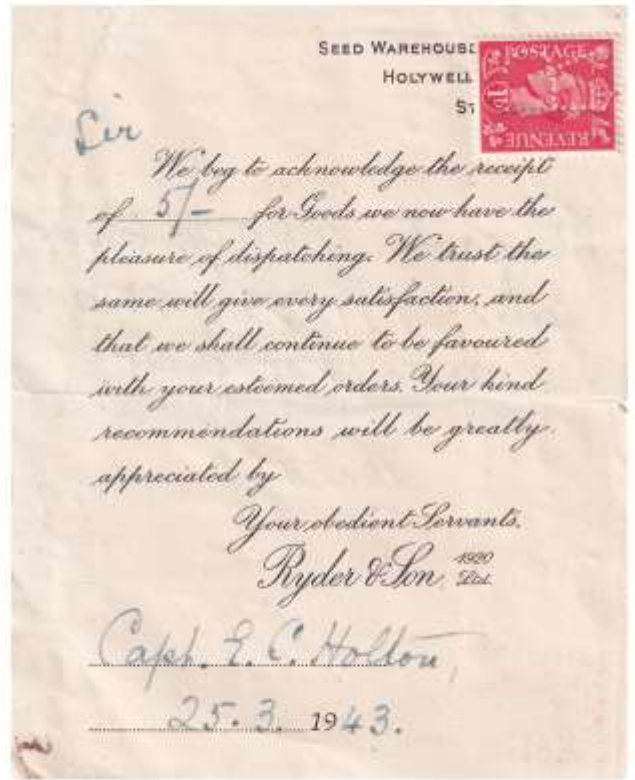 SEED WAREHOUSE
HOLYWELL
ST
POSTAGE
1D
REVENUE
Sir
We beg to acknowledge the receipt
of 5/- for Goods we now have the
pleasure of dispatching. We trust the
same will give every satisfaction, and
that we shall continue to be favoured
with your esteemed orders. Your kind
recommendations will be greatly
appreciated by
Your obedient Servants,
Ryder & Son 1920
Ltd.
Capt. E. C. Holton,
25.3. 1943.